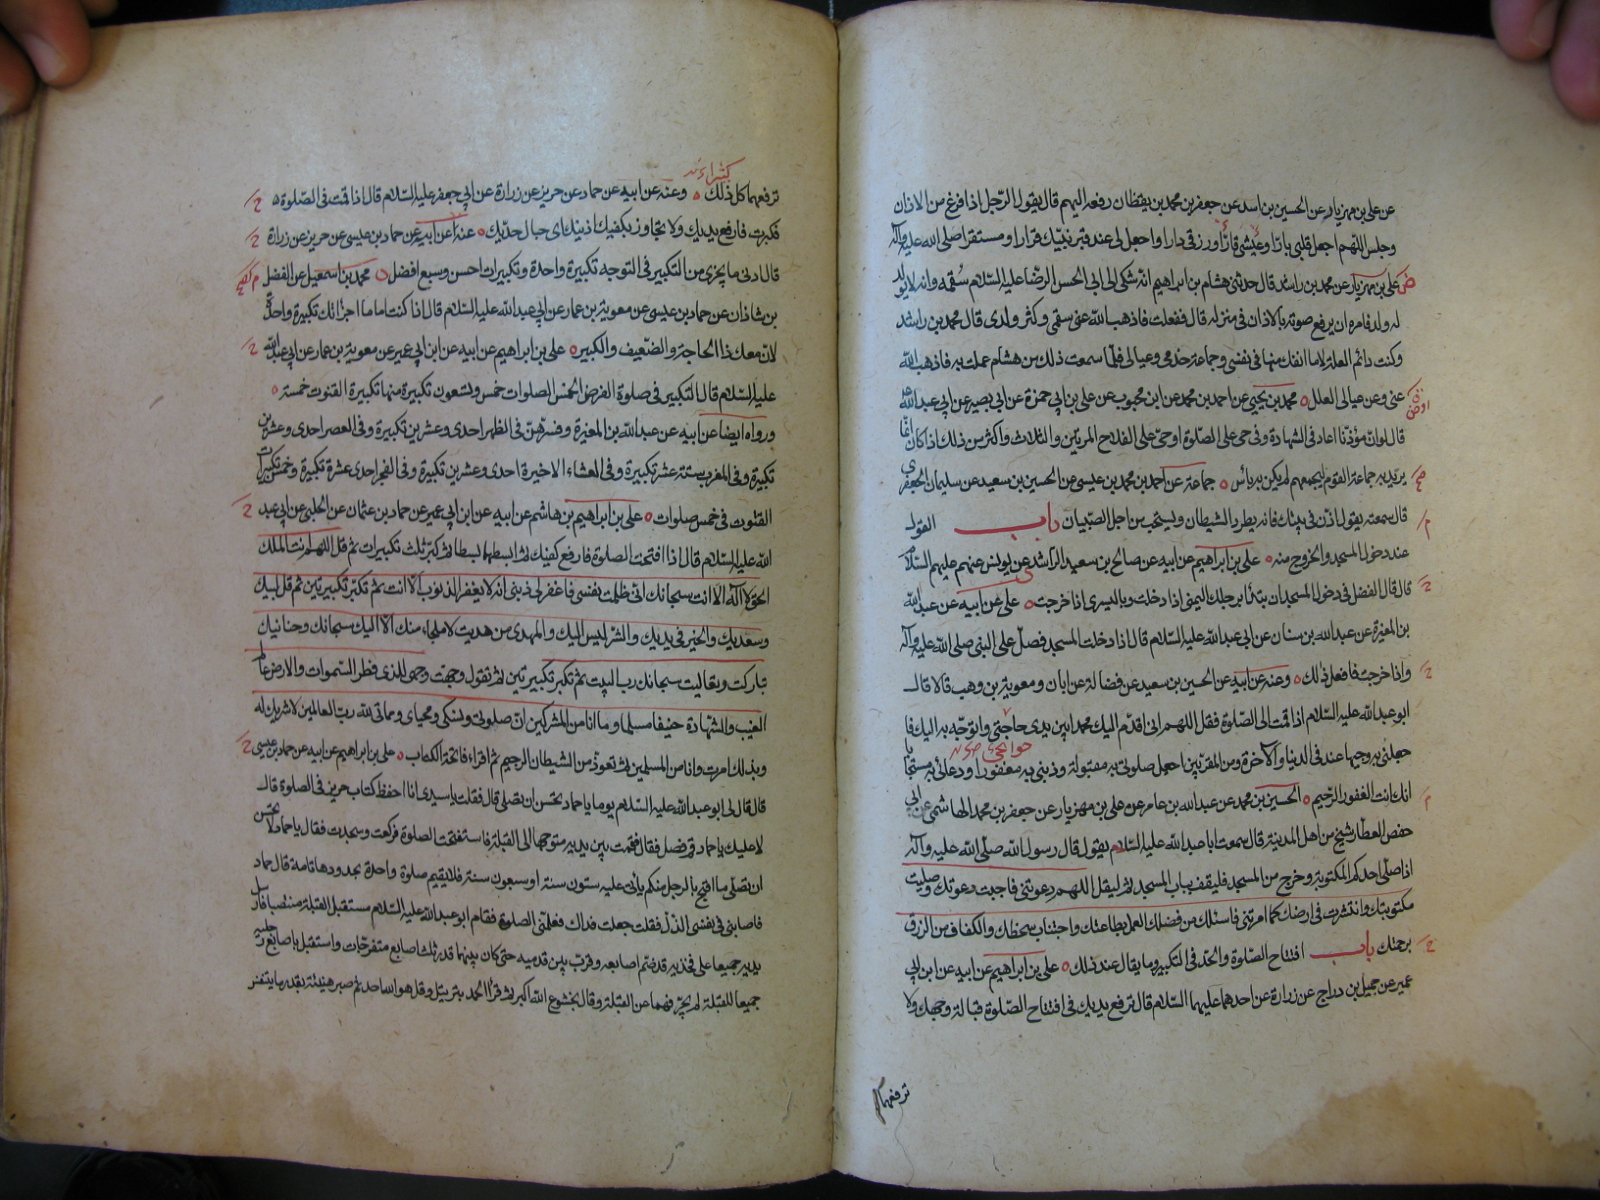 عن علي بن مهزيار عن الحسين بن اسد عن جعفر بن محمد بن يقظان رفعه اليهم قال يقول الرجل اذا فرغ من الاذان
وجلس اللهم اجعل قلبي بارا وعيشي قارا ورزقي دارا واجعل لي عند قبر نبيك قرارا ومستقرا صلى الله عليه وآله
علي بن مهزيار عن محمد بن راشد قال حدثني هشام بن ابراهيم انه شكى الى ابي الحسن الرضا عليه السلام سقمه وانه لا يولد
له ولد فامره ان يرفع صوته بالاذان في منزله قال ففعلت فاذهب الله عني سقمي وكثر ولدي قال محمد بن راشد
وكنت دائم العلة ما انفك منها في نفسي وجماعة خدمي وعيالي فلما سمعت ذلك من هشام عملت به فاذهب الله
عني وعن عيالي العلل محمد بن يحيى عن احمد بن محمد عن ابن محبوب عن علي بن ابي حمزة عن ابي بصير عن ابي عبد الله ع
قال لو ان مؤذنا اعاد في الشهادة وفي حي على الصلوة او حي على الفلاح المرتين والثلاث واكثر من ذلك اذا كان انما
يريد به جماعة القوم ليجمعهم لم يكن به بأس جماعة عن احمد بن محمد بن عيسى عن الحسين بن سعيد عن سليمان الجعفري
قال سمعته يقول اذن في بيتك فانه يطرد الشيطان ويستحب من اجل الصبيان باب القول
عند دخول المسجد والخروج منه علي بن ابراهيم عن ابيه عن صالح بن سعيد الراشدي عن يونس عنهم عليهم السلام
قال قال الفضل في دخول المسجد ان تبتدأ برجلك اليمنى اذا دخلت وباليسرى اذا خرجت علي عن ابيه عن عبد الله
بن المغيرة عن عبد الله بن سنان عن ابي عبد الله عليه السلام قال اذا دخلت المسجد فصل على النبي صلى الله عليه وآله
واذا خرجت فافعل ذلك وعنه عن ابيه عن الحسين بن سعيد عن فضالة عن ابان ومعوية بن وهب قالا قال
ابو عبد الله عليه السلام اذا قمت الى الصلوة فقل اللهم اني اقدم اليك محمدا بين يدي حاجتي واتوجه به اليك فا
حوائجي
جعلني به وجيها عندك في الدنيا والآخرة ومن المقربين اجعل صلوتي به مقبولة وذنبي به مغفورا ودعائي به مستجابا
انك انت الغفور الرحيم الحسين بن محمد عن عبد الله بن عامر عن علي بن مهزيار عن جعفر بن محمد الهاشمي عن ابي
حفص العطار شيخ من اهل المدينة قال سمعت ابا عبد الله عليه السلام يقول قال رسول الله صلى الله عليه وآله
اذا صلى احدكم المكتوبة وخرج من المسجد فليقف بباب المسجد ثم ليقل اللهم دعوتني فاجبت دعوتك وصليت
مكتوبتك وانتشرت في ارضك كما امرتني فاسئلك من فضلك العمل بطاعتك واجتناب سخطك والكفاف من الرزق
برحمتك باب افتتاح الصلوة والحد في التكبير وما يقال عند ذلك علي بن ابراهيم عن ابيه عن ابن ابي
عمير عن جميل بن دراج عن زرارة عن احدهما عليهما السلام قال ترفع يديك في افتتاح الصلوة قبالة وجهك ولا
ترفعهما
ترفعهما كل ذلك وعنه عن ابيه عن حماد عن حريز عن زرارة عن ابي جعفر عليه السلام قال اذا قمت في الصلوة
فكبرت فارفع يديك ولا تجاوز بكفيك اذنيك اي حيال خديك عنه عن ابيه عن حماد بن عيسى عن حريز عن زرارة
قال ادنى ما يجزى من التكبير في التوجه تكبيرة واحدة وتكبيرات احسن وسبع افضل محمد بن اسمعيل عن الفضل
بن شاذان عن حماد بن عيسى عن معوية بن عمار عن ابي عبد الله عليه السلام قال اذا كنت اماما اجزأتك تكبيرة واحدة
لان معك ذا الحاجة والضعيف والكبير علي بن ابراهيم عن ابيه عن ابن ابي عمير عن معوية بن عمار عن ابي عبد الله
عليه السلام قال التكبير في صلوة الفرض الخمس الصلوات خمس وتسعون تكبيرة منها تكبيرة القنوت خمسة
ورواه ايضا عن ابيه عن عبد الله بن المغيرة وفسرهن في الظهر احدى وعشرين تكبيرة وفي العصر احدى وعشرين
تكبيرة وفي المغرب ستة عشر تكبيرة وفي العشاء الاخيرة احدى وعشرين تكبيرة وفي الفجر احدى عشرة تكبيرة وخمس تكبيرات
القنوت في خمس صلوات علي بن ابراهيم بن هاشم عن ابيه عن ابن ابي عمير عن حماد بن عثمان عن الحلبي عن ابي عبد
الله عليه السلام قال اذا افتتحت الصلوة فارفع كفيك ثم ابسطهما بسطا ثم كبر ثلث تكبيرات ثم قل اللهم انت الملك
الحق لا اله الا انت سبحانك اني ظلمت نفسي فاغفر لي ذنبي انه لا يغفر الذنوب الا انت ثم تكبر تكبيرتين ثم قل لبيك
وسعديك والخير في يديك والشر ليس اليك والمهدي من هديت لا ملجاء منك الا اليك سبحانك وحنانيك
تباركت وتعاليت سبحانك رب البيت ثم تكبر تكبيرتين ثم تقول وجهت وجهي للذي فطر السموات والارض عالم
الغيب والشهادة حنيفا مسلما وما انا من المشركين ان صلوتي ونسكي ومحياي ومماتي لله رب العالمين لا شريك له
وبذلك امرت وانا من المسلمين ثم تعوذ من الشيطان الرجيم ثم اقراء فاتحة الكتاب علي بن ابراهيم عن ابيه عن حماد بن عيسى
قال قال لي ابو عبد الله عليه السلام يوما يا حماد تحسن ان تصلي قال فقلت يا سيدي انا احفظ كتاب حريز في الصلوة قال
لا عليك يا حماد قم فصل فقال فقمت بين يديه متوجها الى القبلة فاستفتحت الصلوة فركعت وسجدت فقال يا حماد لا تحسن
ان تصلي ما اقبح بالرجل منكم يأتي عليه ستون سنة او سبعون سنة فلا يقيم صلوة واحدة بحدودها تامة قال حماد
فاصابني في نفسي الذل فقلت جعلت فداك فعلمني الصلوة فقام ابو عبد الله عليه السلام مستقبل القبلة منتصبا فارسل
يديه جميعا على فخذيه قد ضم اصابعه وقرب بين قدميه حتى كان بينهما قدر ثلث اصابع متفرجات واستقبل باصابع رجليه
جميعا القبلة لم يحرفهما عن القبلة وقال بخشوع الله اكبر ثم قرأ الحمد بترتيل وقل هو الله احد ثم صبر هنيئة بقدر ما يتنفس